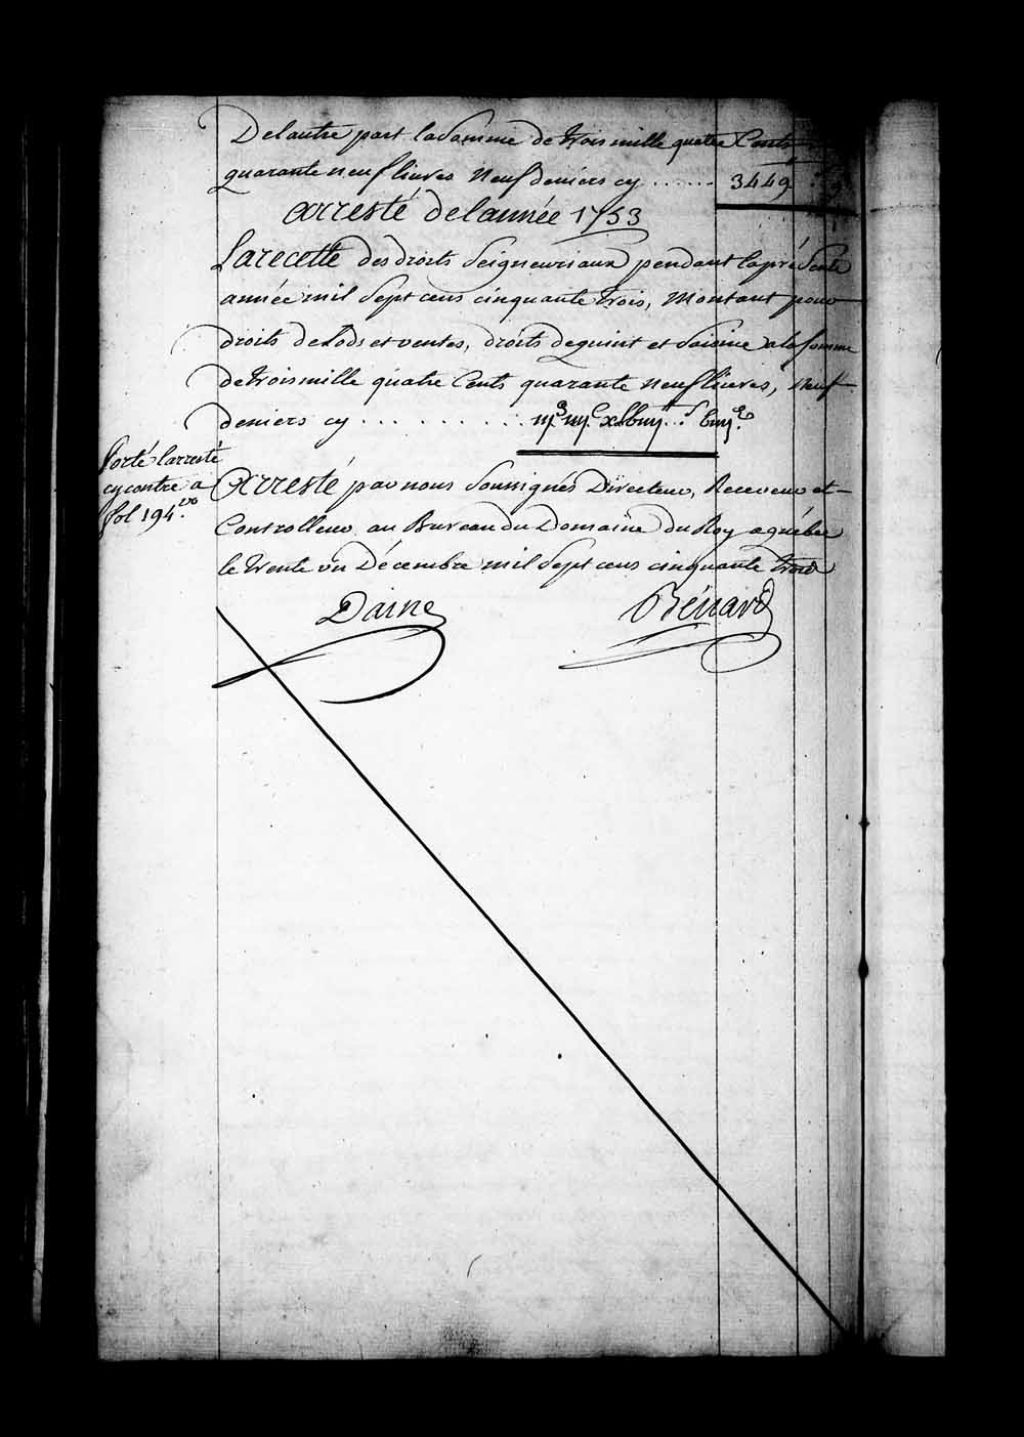 De l'autre part la Somme de trois mille quatre Cents
quarante neuf livres Neuf deniers cy ...... 3449 " " 9
Arresté de l'année 1753
La recette des droits Seigneuriaux pendant la présente
année mil Sept cens cinquante trois, Montant pour
droits de lods et ventes, droits de quint et Saisine a la Somme
de trois mille quatre Cents quarante neuf livres, neuf
deniers cy
Porté l'arresté
cy contre a
fol 194 vo
Arresté par nous Soussignés Directeur, Receveur et
Controlleur au Bureau du Domaine du Roy a quebec
le trente un Décembre mil Sept cens cinquante trois
Daine Bénard